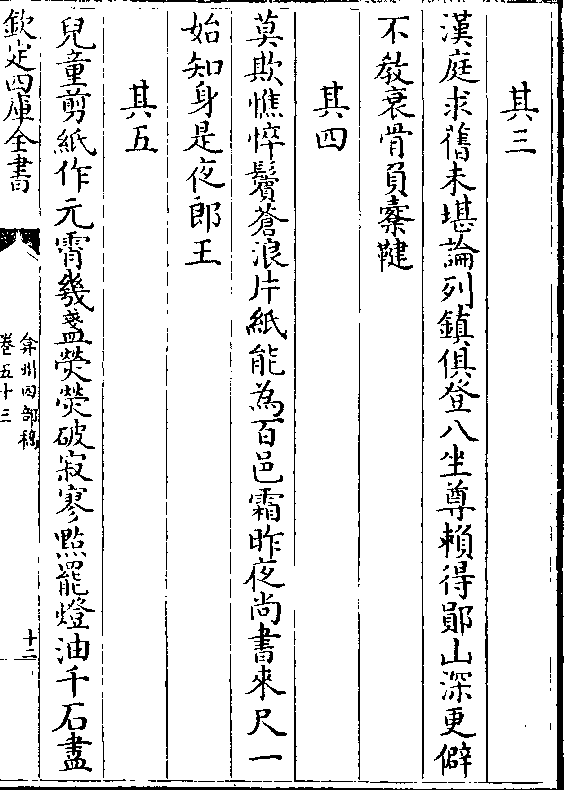 其三
漢庭求舊未堪論列鎮俱登八坐尊賴得鄖山深更僻
不教衰骨負櫜鞬
其四
莫欺憔悴鬢蒼浪片紙能為百邑霜昨夜尚書來尺一
始知身是夜郎王
其五
兒童剪紙作元宵幾盞熒熒破寂寥點罷燈油千石盡
欽定四庫全書
弇州四部稿
卷五十三
十二